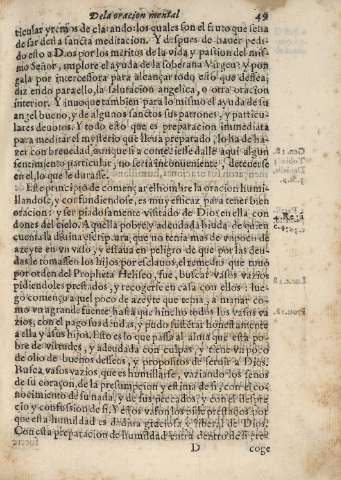 De la oracion mental 49
ticular y remos de clamando: los quales son el fruto que se ha
de sacar de la sancta meditacion. Y despues de hauer pedi-
do esto a Dios por los meritos de la vida y passion del mis-
mo Señor, implore el ayuda de la soberana Virgen: y pon
gala por intercessora para alcançar todo esto que dessea,
diziendo para ello, la salutacion angelica, o otra oracion
interior. Y inuoque tambien para lo mismo el ayuda de su
angel bueno, y de algunos sanctos sus patrones, y particu-
lares deuotos. Y todo esto que es preparacion immediata
para mediar el mysterio que lleua preparado, lo ha de ha-
zer con breuedad, aunque si a conteciesse dalle aqui algun
sentimiento particular, no seria inconueniente, detenerse
en el, lo que le durasse.
Este principio de començar el hombre la oracion humi-
llandose, y confundiendose, es muy efficaz para tener bien
oracion: y ser piadosamente visitado de Dios en ella con
dones del cielo. A quella pobre y adeudada biuda de quien
cuenta la diuina escriptura, que no tenia mas de vn poco de
azeyte en vn vaso, y estaua en peligro de que por las deu-
das le tomassen los hijos por esclauos, el remedio que tuuo
por orden del Propheta Heliseo, fue, buscar vasos vazios
pidiendolos prestados, y recogerse en casa con ellos: lue-
go començo aquel poco de azeyte que tenia, a manar co-
mo vna grande fuente hasta que hincho todos los vasos va
zios, con el pago sus deudas, y pudo sustetar honestamente
a ella y a sus hijos. Esto es lo que passa al alma que esta po-
bre de virtudes, y adeudada con culpas, y tiene vn poco
de olio de buenos desseos, y propositos de seruir a Dios.
Busca vasos vazios, que es humillarse, vaziando los senos
de su coraçon, de la presumpcion y estima de si, con el co-
nocimiento de su nada, y de sus peccados, y con el despre
cio y confussion de si. Y estos vasos los pide prestados, por
que esta humildad es dadiua graciosa y liberal de Dios.
Con esta preparacion de humildad entra dentro de si, y re-
D coge
4. Re. 4